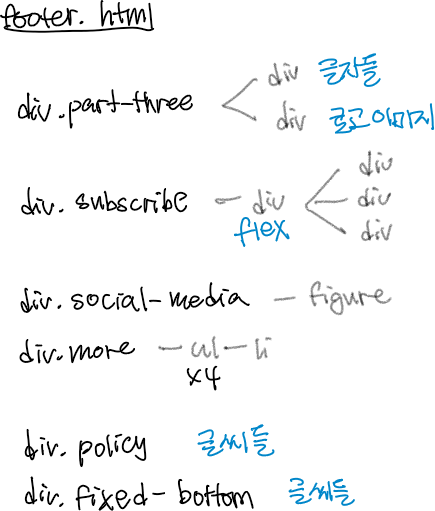 footer. html
div 글자들
div.part-three
div 로고이미지
div
div. subscribe - div div
flex div
div.social-media - figure
div.more - ul - li
x4
div. policy 글씨들
div. fixed-bottom 글씨들